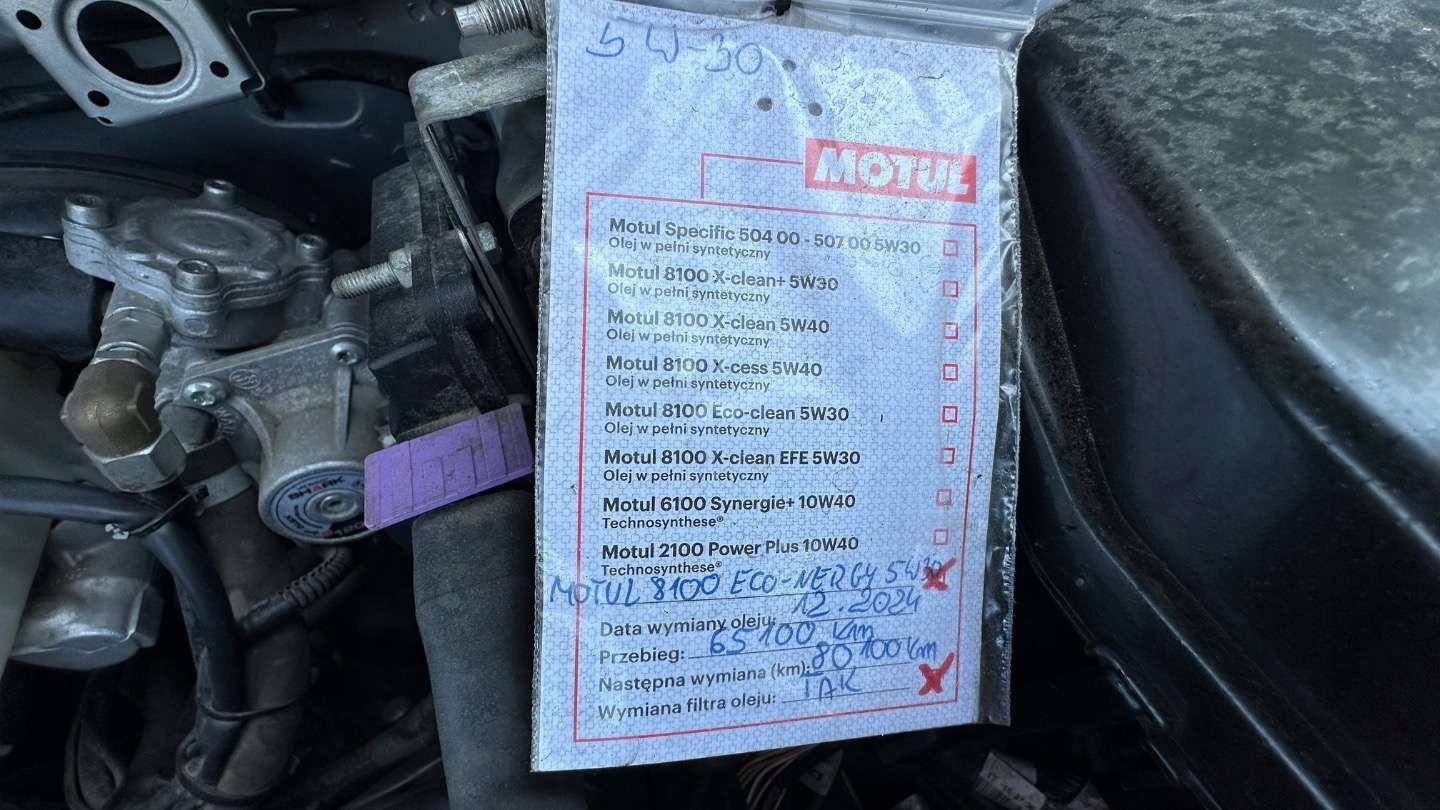 5W-30
MOTUL
Motul Specific 504 00 - 507 00 5W30
Olej w pełni syntetyczny
Motul 8100 X-clean+ 5W30
Olej w pełni syntetyczny
Motul 8100 X-clean 5W40
Olej w pełni syntetyczny
Motul 8100 X-cess 5W40
Olej w pełni syntetyczny
Motul 8100 Eco-clean 5W30
Olej w pełni syntetyczny
Motul 8100 X-clean EFE 5W30
Olej w pełni syntetyczny
Motul 6100 Synergie+ 10W40
Technosynthese®
Motul 2100 Power Plus 10W40
Technosynthese®
MOTUL 8100 ECO-NERGY 5W30
Data wymiany oleju: 12.2024
Przebieg: 65100 km
Następna wymiana (km): 80100 km
Wymiana filtra oleju: TAK
SHARK